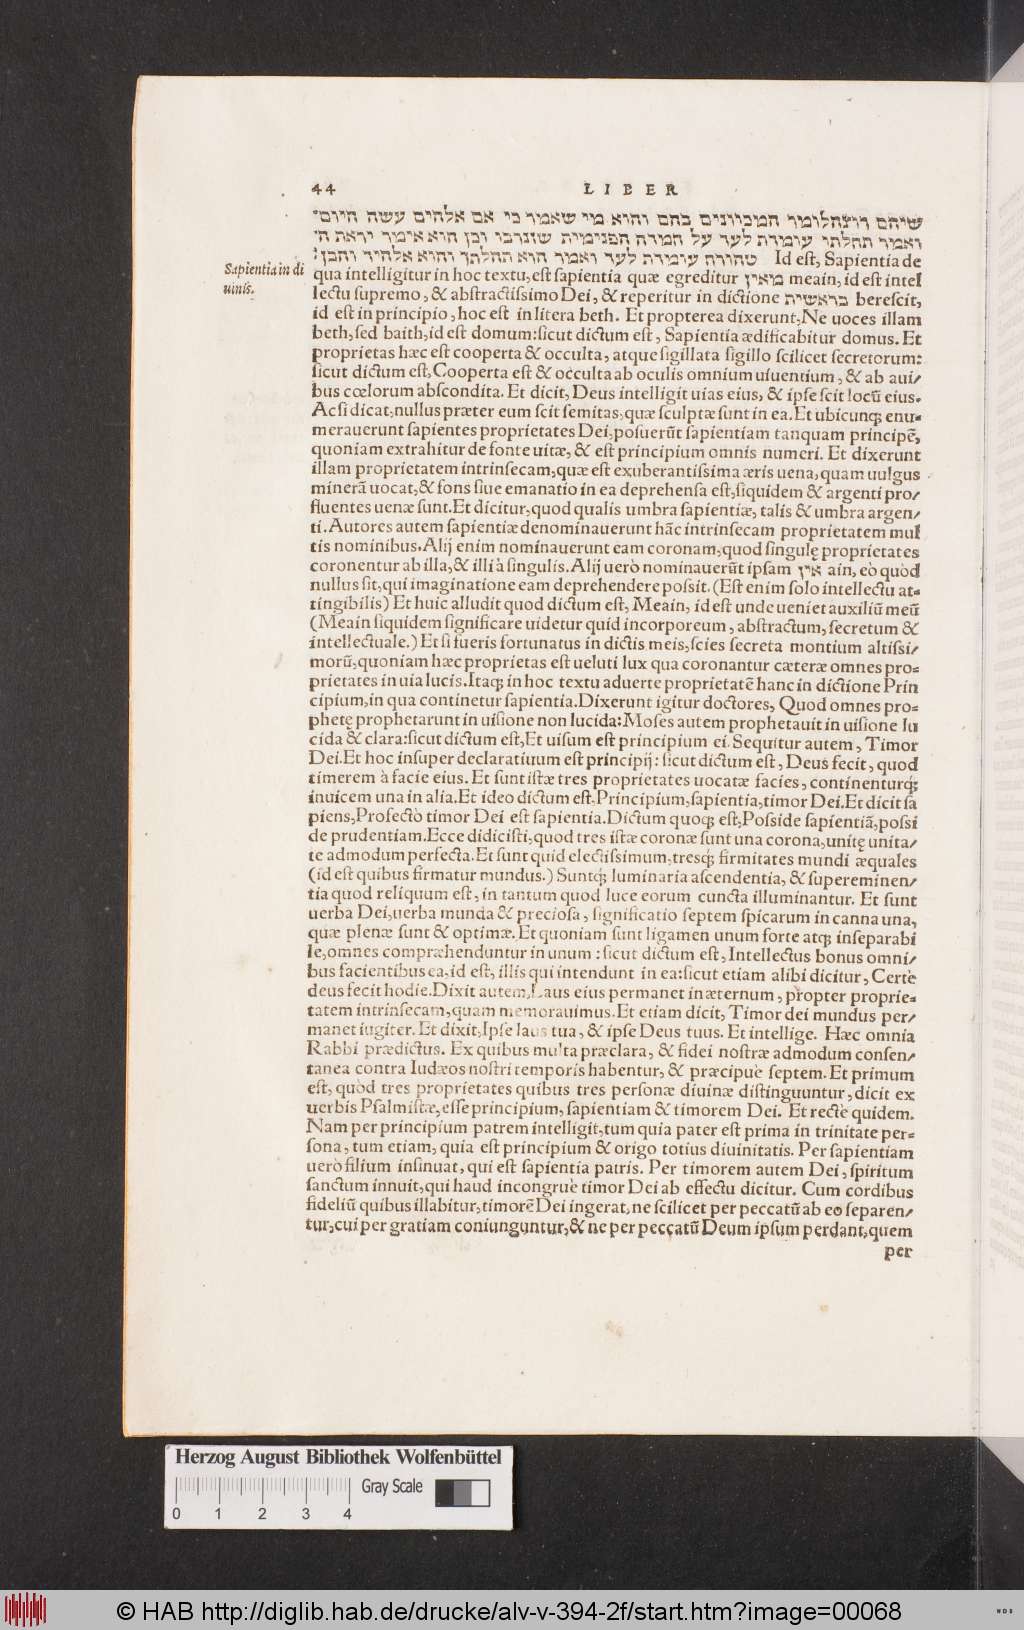 44 LIBER
שיהם
בחם והוא מי שאמר כי אם אלהים עשה היום
ואמר תהלתי עומדת לעד על המדה הפנימית שזכרנו וכן הוא אימר יראת ה׳
טהורה עומדת לעד ואמר הוא תהלתך והוא אלהיך והבן: Id est, Sapientia de
Sapientia in di
uinis.
qua intelligitur in hoc textu, est sapientia quæ egreditur מאין meain, id est intel
lectu supremo, & abstractissimo Dei, & reperitur in dictione בראשית berescit,
id est in principio, hoc est in litera beth. Et propterea dixerunt, Ne uoces illam
beth, sed baith, id est domum: sicut dictum est, Sapientia ædificabitur domus. Et
proprietas hæc est cooperta & occulta, atque sigillata sigillo scilicet secretorum:
sicut dictum est, Cooperta est & occulta ab oculis omnium uiuentium, & ab aui/
bus cœlorum abscondita. Et dicit, Deus intelligit uias eius, & ipse scit locũ eius.
Ac si dicat, nullus præter eum scit semitas, quæ sculptæ sunt in ea. Et ubicunq; enu-
merauerunt sapientes proprietates Dei, posuerũt sapientiam tanquam principẽ,
quoniam extrahitur de fonte uitæ, & est principium omnis numeri. Et dixerunt
illam proprietatem intrinsecam, quæ est exuberantissima æris uena, quam uulgus
minerã uocat, & fons siue emanatio in ea deprehensa est, siquidem & argenti pro/
fluentes uenæ sunt. Et dicitur, quod qualis umbra sapientiæ, talis & umbra argen/
ti. Autores autem sapientiæ denominauerunt hãc intrinsecam proprietatem mul
tis nominibus. Alij enim nominauerunt eam coronam, quod singulę proprietates
coronentur ab illa, & illi à singulis. Alij uerò nominauerũt ipsam אין ain, eò quòd
nullus sit, qui imaginatione eam deprehendere possit. (Est enim solo intellectu at-
tingibilis) Et huic alludit quod dictum est, Meain, id est unde ueniet auxiliũ meũ
(Meain siquidem significare uidetur quid incorporeum, abstractum, secretum &
intellectuale.) Et si fueris fortunatus in dictis meis, scies secreta montium altissi/
morũ, quoniam hæc proprietas est ueluti lux qua coronantur cæteræ omnes pro-
prietates in uia lucis. Itaq; in hoc textu aduerte proprietatẽ hanc in dictione Prin
cipium, in qua continetur sapientia. Dixerunt igitur doctores, Quod omnes pro-
phetę prophetarunt in uisione non lucida: Moses autem prophetauit in uisione lu
cida & clara: sicut dictum est, Et uisum est principium ei. Sequitur autem, Timor
Dei. Et hoc insuper declaratiuum est principij: sicut dictum est, Deus fecit, quod
timerem à facie eius. Et sunt istæ tres proprietates uocatæ facies, continenturq;
inuicem una in alia. Et ideo dictum est, Principium, sapientia, timor Dei. Et dicit sa
piens, Profectò timor Dei est sapientia. Dictum quoq; est, Posside sapientiã, possi
de prudentiam. Ecce didicisti, quod tres istæ coronæ sunt una corona, unitę unita/
te admodum perfecta. Et sunt quid electissimum, tresq; firmitates mundi æquales
(id est quibus firmatur mundus.) Suntq; luminaria ascendentia, & supereminen/
tia quod reliquum est, in tantum quod luce eorum cuncta illuminantur. Et sunt
uerba Dei, uerba munda & preciosa, significatio septem spicarum in canna una,
quæ plenæ sunt & optimæ. Et quoniam sunt ligamen unum forte atq; inseparabi
le, omnes compræhenduntur in unum: sicut dictum est, Intellectus bonus omni/
bus facientibus ea, id est, illis qui intendunt in ea: sicut etiam alibi dicitur, Certè
deus fecit hodie. Dixit autem, Laus eius permanet in æternum, propter proprie-
tatem intrinsecam, quam memorauimus. Et etiam dicit, Timor dei mundus per-
manet iugiter. Et dixit, Ipse laus tua, & ipse Deus tuus. Et intellige. Hæc omnia
Rabbi prædictus. Ex quibus multa præclara, & fidei nostræ admodum consen/
tanea contra Iudæos nostri temporis habentur, & præcipuè septem. Et primum
est, quòd tres proprietates quibus tres personæ diuinæ distinguuntur, dicit ex
uerbis Psalmistæ, esse principium, sapientiam & timorem Dei. Et rectè quidem.
Nam per principium patrem intelligit, tum quia pater est prima in trinitate per-
sona, tum etiam, quia est principium & origo totius diuinitatis. Per sapientiam
uerò filium insinuat, qui est sapientia patris. Per timorem autem Dei, spiritum
sanctum innuit, qui haud incongruè timor Dei ab effectu dicitur. Cum cordibus
fideliũ quibus illabitur, timorẽ Dei ingerat, ne scilicet per peccatũ ab eo separen/
tur, cui per gratiam coniunguntur, & ne per peccatũ Deum ipsum perdant, quem
per
Herzog August Bibliothek Wolfenbüttel
Gray Scale
0 1 2 3 4
© HAB http://diglib.hab.de/drucke/alv-v-394-2f/start.htm?image=00068